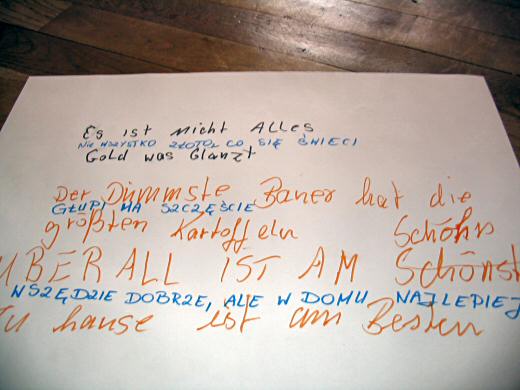 Es ist nicht ALLes
NIE WSZYSTKO ZŁOTO, CO SIĘ ŚWIECI
Gold was Glanzt
Der Dümmste Bauer hat die
GŁUPI MA SZCZĘŚCIE
größten Kartoffeln Schöhn
ÜBERALL IST AM Schönst
WSZĘDZIE DOBRZE, ALE W DOMU NAJLEPIEJ
Zu hause ist am Besten